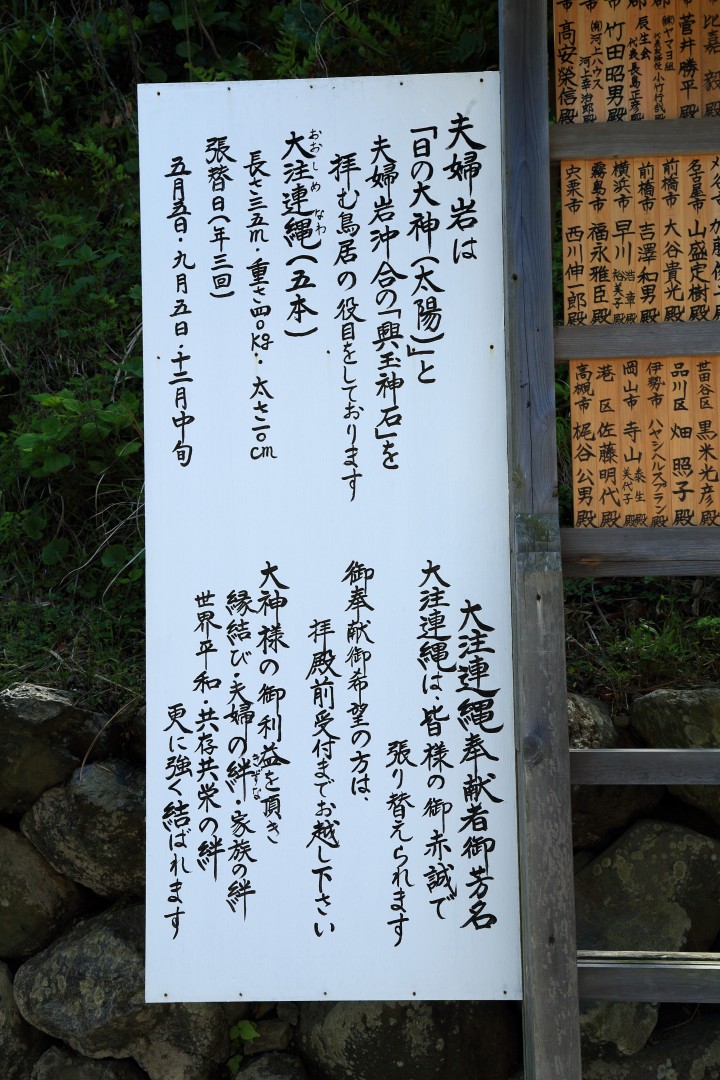 夫婦岩は
「日の大神(太陽)」と
夫婦岩沖合の「興玉神石」を
拝む鳥居の役目をしております
おおしめなわ
大注連縄(五本)
長さ三五m・重さ四〇kg・太さ一〇cm
張替日(年三回)
五月五日・九月五日・十二月中旬
大注連縄奉献者御芳名
大注連縄は、皆様の御赤誠で
張り替えられます
御奉献御希望の方は、
拝殿前受付までお越し下さい
大神様の御利益を頂き
きずな
縁結び・夫婦の絆・家族の絆
世界平和・共存共栄の絆
更に強く結ばれます
比嘉毅殿
菅井勝平殿
㈱ヤマヨ組
小竹行哉殿
辰生会
代表長島正彦殿
竹田昭男殿
㈲河上ハウス
河上幸治郎殿
市高安榮信殿
名古屋市山盛定樹殿
前橋市大谷貴光殿
前橋市吉澤和男殿
横浜市早川浩幸裕美子殿
霧島市福永雅臣殿
宍粟市西川伸一郎殿
世田谷区黒米光彦殿
品川区畑照子殿
伊勢市ハヤシヘルスプラン殿
岡山市寺山泰生美代子殿
港区佐藤明代殿
高槻市梶谷公男殿